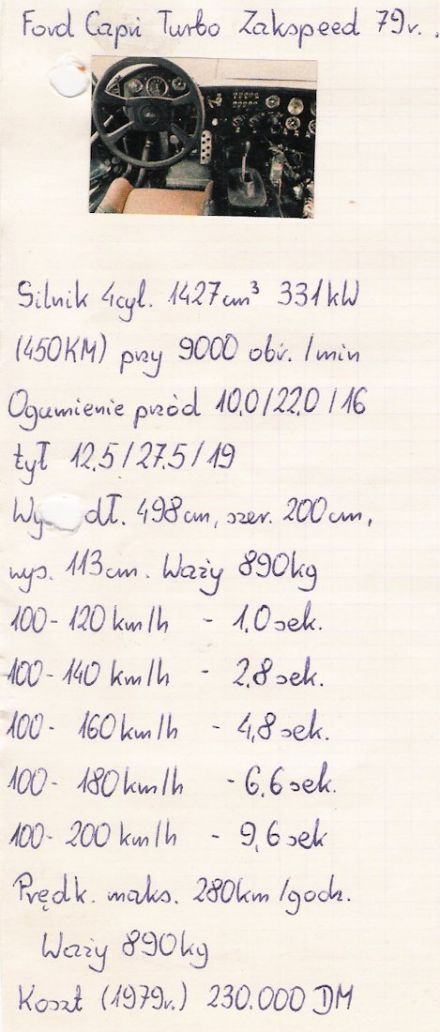 Ford Capri Turbo Zakspeed 79r.
Silnik 4cyl. 1427cm³ 331kW
(450KM) przy 9000 obr. /min
Ogumienie przód 10,0/22,0/16
tył 12,5/27,5/19
dł. 498cm, szer. 200cm,
wys. 113cm. Waży 890kg
100-120km/h - 1,0sek.
100-140km/h - 2,8sek.
100-160km/h - 4,8sek.
100-180km/h - 6,6sek.
100-200km/h - 9,6sek
Prędk. maks. 280km/godz.
Waży 890kg
Koszt (1979r.) 230.000 DM